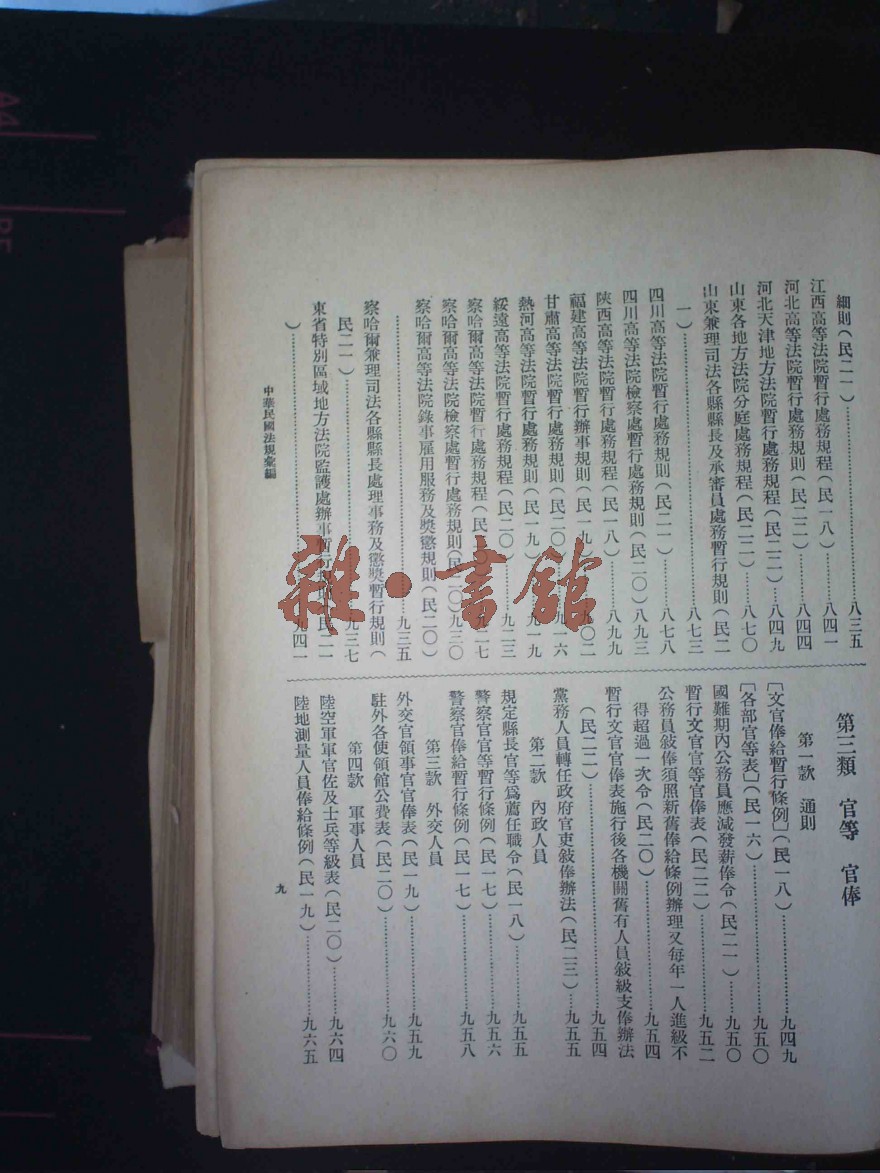 細則(民二一)……八三五
江西高等法院暫行處務規程(民一八)……八四一
河北高等法院暫行處務規則(民二二)……八四四
河北天津地方法院暫行處務規程(民二二)……八四九
山東各地方法院分庭處務規程(民二二)……八七〇
山東兼理司法各縣縣長及承審員處務暫行規則(民二
一)……八七三
四川高等法院暫行處務規則(民二一)……八七八
四川高等法院檢察處暫行處務規則(民二〇)……八九三
陝西高等法院暫行處務規程(民一八)……八九九
福建高等法院暫行辦事規則(民一九)……九〇二
甘肅高等法院暫行處務規則(民二〇)……九一六
熱河高等法院暫行處務規程(民一九)……九一九
綏遠高等法院暫行處務規程(民二〇)……九二三
察哈爾高等法院暫行處務規程(民二〇)……九二七
察哈爾高等法院檢察處暫行處務規則(民二〇)九三〇
察哈爾高等法院錄事雇用服務及獎懲規則(民二〇)
……九三五
察哈爾兼理司法各縣縣長處理事務及懲獎暫行規則(
民二一)……九三七
東省特別區域地方法院監護處辦事暫行規則(民二一
)……九四一
第三類 官等 官俸
第一款 通則
[文官俸給暫行條例](民一八)……九四九
[各部官等表](民一六)……九五〇
國難期內公務員應減發薪俸令(民二一)……九五〇
暫行文官官等官俸表(民二二)……九五二
公務員敍俸須照新舊俸給條例辦理又每年一人進級不
得超過一次令(民二〇)……九五四
暫行文官官俸表施行後各機關舊有人員敍級支俸辦法
(民二二)……九五四
黨務人員轉任政府官吏敍俸辦法(民二三)……九五五
第二款 內政人員
規定縣長官等爲薦任職令(民一八)……九五五
警察官官等暫行條例(民一七)……九五六
警察官俸給暫行條例(民一七)……九五八
第三款 外交人員
外交官領事官官俸表(民一九)……九五九
駐外各使領館公費表(民二〇)……九六〇
第四款 軍事人員
陸空軍軍官佐及士兵等級表(民二〇)……九六四
陸地測量人員俸給條例(民一九)……九六五
中華民國法規彙編
九
雜·書館